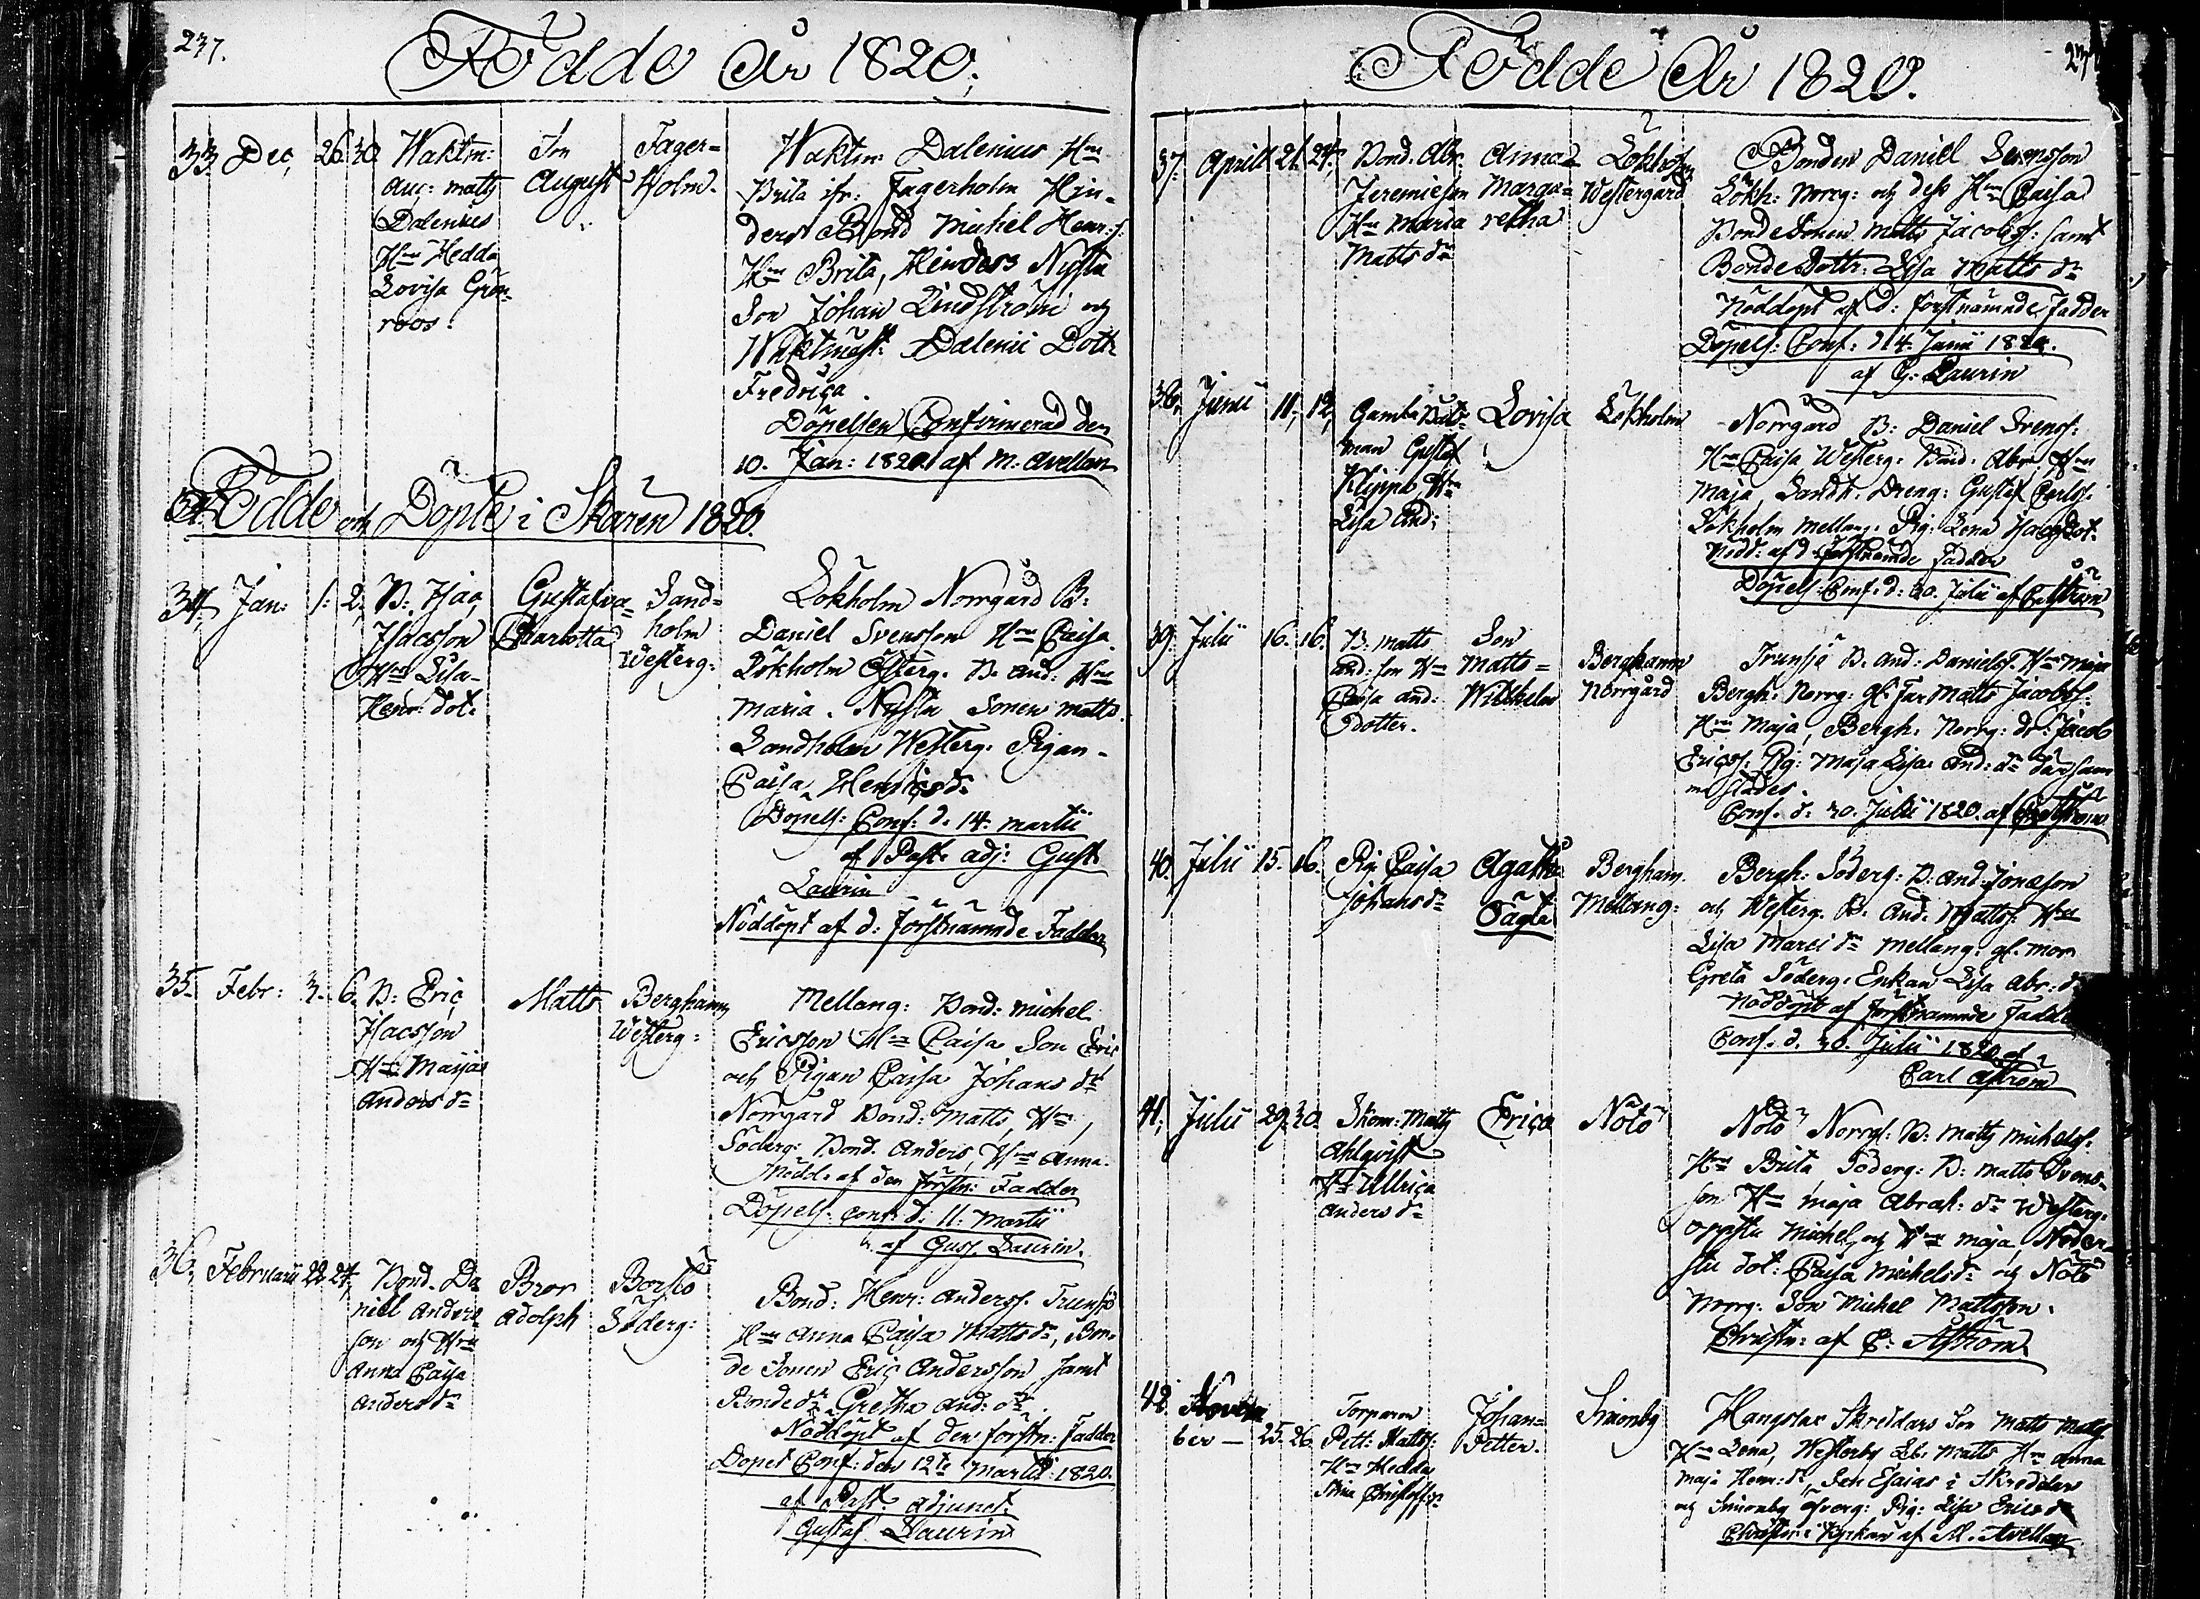 237.
Födde År 1820.
33. Dec. 26. 30.
Waktm:
Aug: Matts
Dalenius
H:ru Hedda
Lovisa Grön-
roos.
Son
August
Fager-
Holm.
Waktm: Dalenius H:ru
Brita ifr: Fagerholm Hin-
ders Bond Michel Henr:s:
H:ru Brita, Hinders Nysta
Son Johan Lindström och
Waktmäst: Dalenii Dottr
Fredrica.
Döpelsen Confirmerad den
10. Jan: 1820. af M: Avellan
Födde och Döpte i Skären 1820.
34. Jan: 1. 2.
B: Isac
Isacsson
H:ru Lisa
Henr: dot:
Gustafva
Charlotta
Sand-
holm
Westerg:
Lökholm Norrgård B:
Daniel Svensson H:ru Caisa.
Lökholm Österg. B. And: H:ru
Maria. Nysta Sonen Matts.
Sandholm Westerg. Pigan
Caisa Henricsdr
Döpels: Conf: d. 14. Martii
af Past. adj: Gust.
Laurin
Nöddöpt af d: förstnämnde Fadder
35. Febr: 3. 6.
B: Eric
Isacsson
H:ru Maija
Andersdr
Matts
Berghamn
Westerg:
Mellang: Bond: Michel
Ericsson H:ru Caisa Son Eric
och Pigan Caisa Johansdr
Norrgård Bond: Matts, H:ru,
Söderg: Bond. Anders, H:ru Anna.
Nödd. af den förstn: Fadder
Döpels: Conf: d: 11: Martii
af Gust Laurin.
36. Februarii 22. 24.
Bond. Da
niel Anders
son och H:ru
Anna Caisa
Andersdr
Bror
Adolph
Borstö
Söderg:
Bond: Henr: Anderss. Trunsö
H:ru Anna Caisa Mattsdr, Bon-
de Sonen Eric Andersson, samt
Bondedr Gretha And: dr.
Nöddöpt af den förstn: Fadder
Döpel Conf: den 12te Martii 1820.
af Past. Adjunct.
Gustaf Laurin
Födde År 1820.
37. April 21. 24.
Bond. Abr.
Jeremiesson
H:ru Maria
Mattsdr
Anna
Marga=
retha
Lökholm
Westergård
Bonden Daniel Svensson
Lökh: Norrg: och dess H:ru Caisa
Bonde Sonen Matts Jacobs: samt
Bonde Dottr. Lisa Mattsdr
Nöddöpt af d: förstnämnde Fadder
Döpels: Conf: d 4. Junii 1820.
af G: Laurin
38. Junii 11. 12.
Gamla Båts-
man Gustaf
Klippa, H:ru
Lisa And:
Lovisa
Lökholm
Norrgård B: Daniel Svenss:
H:ru Caisa Westerg. Bond. Abr. H:ru
Maja, Sandh. Dreng: Gustaf Carlss.
Lökholm Mellang. Pig: Lena Isacs Dot.
Nödd: af d förstnämde Fadder
Döpels: Conf. d: 30. Julii af C Åström
39. Julii 16. 16.
B. Matts
And: son H:ru
Caisa And:
Dotter.
Son
Matts=
Wilhelm
Berghamn
Norrgård
Trunsö B. And: Danielss. H:ru Maja
Bergh: Norrg: gl: Far Matts Jacobss:
H:ru Maja, Bergh. Norrg: dr: Jacob
Ericss. Pig: Maja Lisa And: dr därsam
mastädes.
Conf. d. 30. Julii 1820. af C Åström
40. Julii 15. 16.
Pig. Caisa
Johansdr
Agatha
Oägta
Bergham.
Mellang:
Bergh: Söderg: B. And: Jonasson
och Westerg. B. And. Mattss. H:ru
Lisa Marci dr Mellang: gl. mor
Greta Söderg: Enkan Lisa Abr: dr
Nöddöpt af förstnämnde Fadder
Conf. d. 30. Julii 1820. af
Carl Åström
41. Julii 29. 30.
Skom: Matts
Ahlqvist
H:ru Ullrica
Andersdr
Erica
Nötö
Nötö Norrg: B: Matts Michelss:
H:ru Brita, Söderg: B: Matts Svens-
son H:ru Maja Abrah: dr Westerg:
Oppstu Michel, och H:ru Maja, Neder-
stu dot: Caisa Michelsdr och Nötö
Norrg: Son Michel Mattsson.
Christn: af C: Åström.
42. Novem
ber — 25. 26.
Torparen
Pett: Mattss:
H:ru Hedda
Stina Christoffsdr
Johan=
Petter.
Simonby
Hangslax Skreddars Son Matts Matts:
H:ru Lena, Westerby Matts H:ru Anna
Maja Henr: dr, Son Esaias i Skreddars
och Simonby Öfverg: Pig: Lisa Ericsdr
Christn: i Kyrkan af M. Avellan.